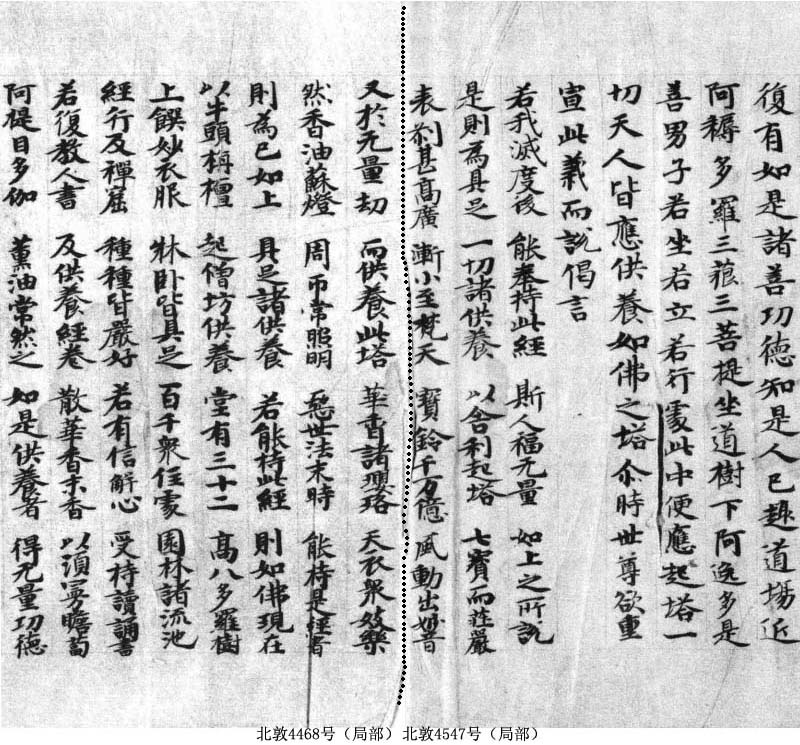 復有如是諸善功德知是人已趣道場近
阿耨多羅三藐三菩提坐道樹下阿逸多是
善男子若坐若立若行處此中便應起塔一
切天人皆應供養如佛之塔尒時世尊欲重
宣此義而說偈言
若我滅度後 能奉持此經 斯人福无量 如上之所說
是則為具足 一切諸供養 以舍利起塔 七寶而莊嚴
表刹甚高廣 漸小至梵天 寶鈴千万億 風動出妙音
又於无量劫 而供養此塔 華香諸瓔珞 天衣衆妓樂
然香油蘇燈 周帀常照明 惡世法末時 能持是經者
則為已如上 具足諸供養 若能持此經 則如佛現在
以牛頭栴檀 起僧坊供養 堂有三十二 高八多羅樹
上饌妙衣服 牀卧皆具足 百千衆住處 園林諸流池
經行及禪窟 種種皆嚴好 若有信解心 受持讀誦書
若復教人書 及供養經卷 散華香末香 以須曼瞻蔔
阿提目多伽 薰油常然之 如是供養者 得无量功德
北敦4468号（局部） 北敦4547号（局部）